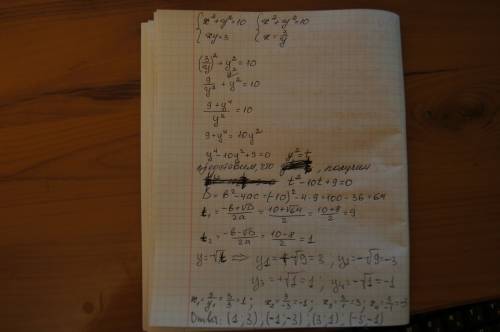 { x² + y² = 10   { x² + y² = 10
{ xy = 3   { x = 3/y
(3/y)² + y² = 10
9/y² + y² = 10
(9 + y⁴)/y² = 10
9 + y⁴ = 10y²
y⁴ - 10y² + 9 = 0   y² = t
представим, что , получим
t² - 10t + 9 = 0
D = b² - 4ac = (-10)² - 4·9 = 100 - 36 = 64
t₁ = (-b + √D)/2a = (10 + √64)/2 = (10 + 8)/2 = 9
t₂ = (-b - √D)/2a = (10 - 8)/2 = 1
y = √t ⇒ y₁ = √9 = 3; y₂ = -√9 = -3
y₃ = +√1 = 1; y₄ = -√1 = -1
x₁ = 3/y₁ = 3/3 = 1; x₂ = 3/-3 = -1; x₃ = 3/1 = 3; x₄ = 3/-1 = -3
Ответ: (1; 3), (-1; -3); (3; 1);